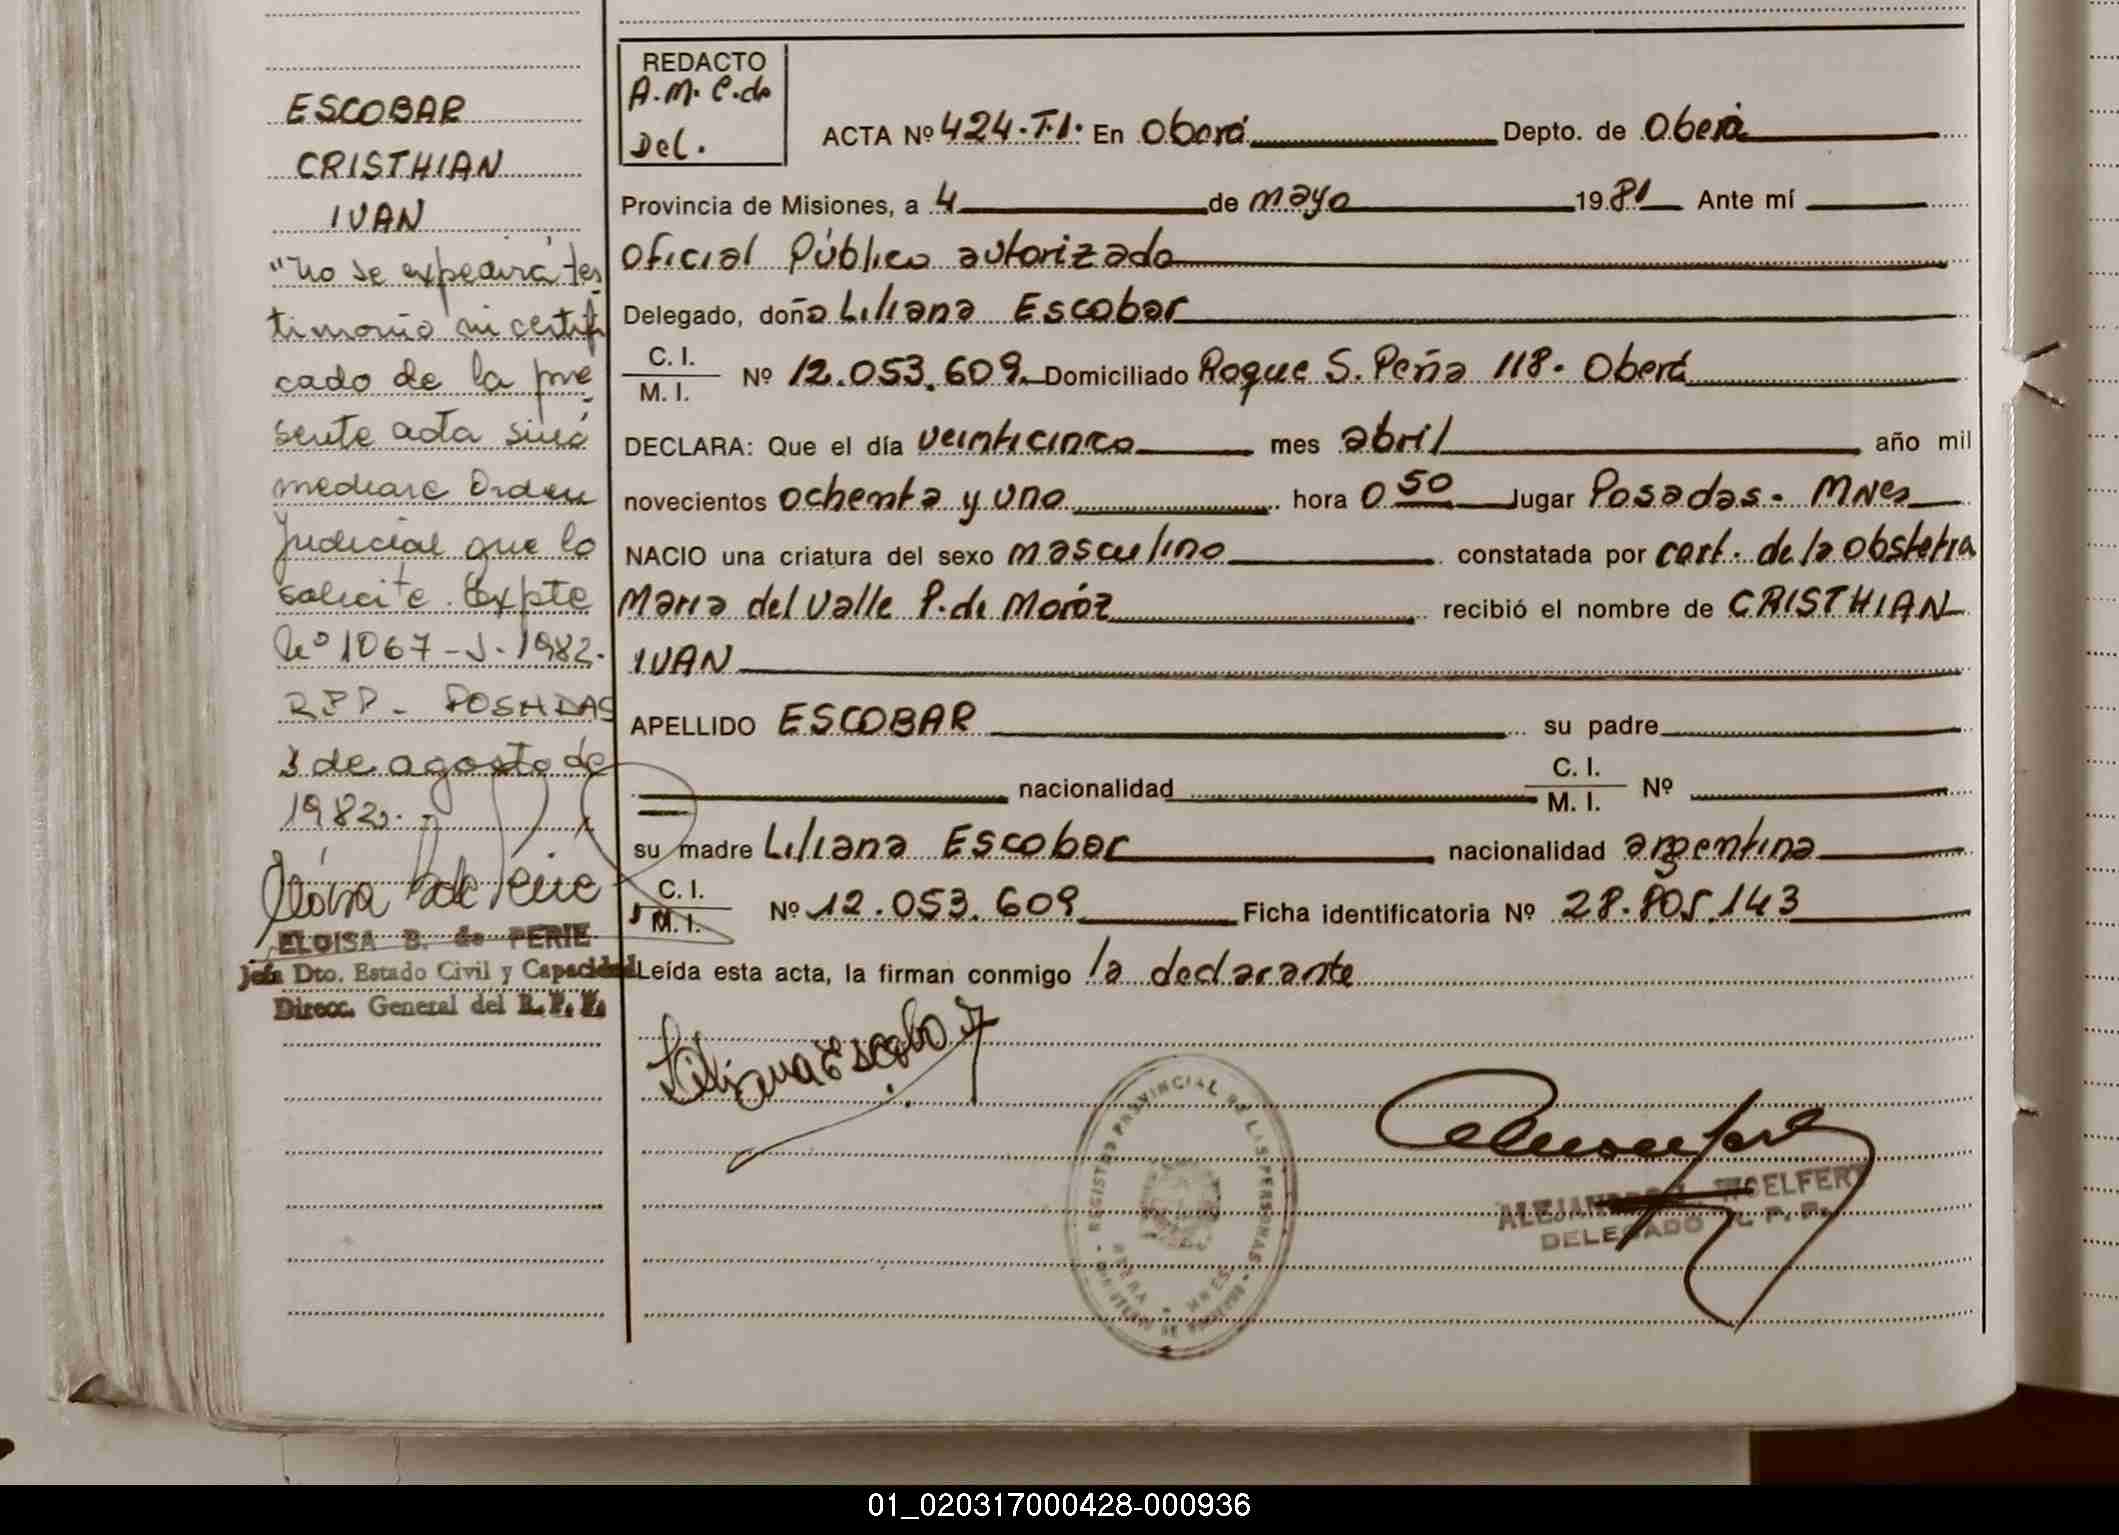 ESCOBAR
CRISTHIAN
IVAN
"No se expedirá tes
timonio ni certifi
cado de la pre
sente acta sino
mediare Orden
Judicial que lo
solicite. Expte
Nº 1067-J-1982.
R.P.P- POSADAS
3 de agosto de
1982.
ELOISA B. de PERIE
Jefa Dto. Estado Civil y Capacidad
Direcc. General del R. P. P.
REDACTO
A.M. C.de
Del.
ACTA Nº 424.T.I. En Oberá Depto. de Oberá
Provincia de Misiones, a 4 de mayo 1981 Ante mí
Oficial Público autorizado
Delegado, doña Liliana Escobar
C. I.
M. I.
Nº 12.053.609 Domiciliado Roque S. Peña 118. Oberá
DECLARA: Que el día veinticinco mes abril año mil
novecientos ochenta y uno hora 0 50 lugar Posadas. MNes
NACIO una criatura del sexo masculino constatada por cert. de la obstetra
Maria del Valle P. de Moróz recibió el nombre de CRISTHIAN
IVAN
APELLIDO ESCOBAR su padre
nacionalidad C. I.
M. I. Nº
su madre Liliana Escobar nacionalidad argentina
C. I.
M. I.
Nº 12.053.609 Ficha identificatoria Nº 28.805.143
Leída esta acta, la firman conmigo la declarante
Liliana Escobar
REGISTRO PROVINCIAL DE LAS PERSONAS
OBERA MNES
ALEJANDRO WOELFERT
DELEGADO R. P. P.
01_020317000428-000936